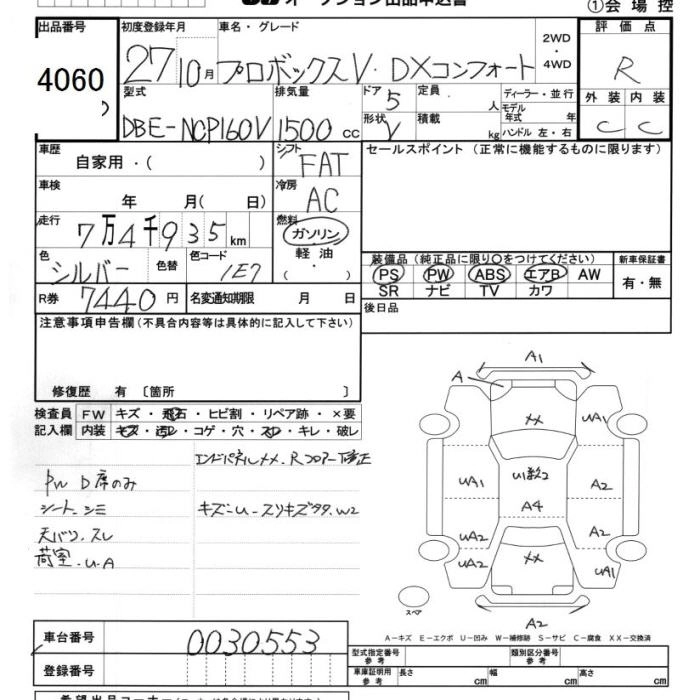 オークション出品申込書
①会場控
出品番号 4060
初度登録年月 27 10月
車名・グレード プロボックスV・DXコンフォート
2WD・4WD
評価点 R
外装 C 内装 C
型式 DBE-NCP160V
排気量 1500 cc
ドア 5
形状 V
定員 人
積載 kg
ディーラー・並行
モデル年式 年
ハンドル 左・右
車歴 自家用・( )
シフト FAT
セールスポイント (正常に機能するものに限ります)
車検 年 月( 日)
冷房 AC
走行 7万4千935km
燃料 ガソリン
軽油・
( ・ )
色 シルバー 色替
色コード 1E7
装備品 (純正品に限り○をつけてください)
PS PW ABS エアB AW
SR ナビ TV カワ
新車保証書
有・無
R券 7440円
名変通知期限 月 日
後日品
注意事項申告欄(不具合内容等は具体的に記入して下さい)
修復歴 有 〔箇所 〕
検査員 FW キズ・飛石・ヒビ割・リペア跡・×要
記入欄 内装 キズ・汚レ・コゲ・穴・スレ・キレ・破レ
エンドパネルメメ.Rフロアー修正
PW D席のみ
シート.シミ
キズ-U-スリキズ多々.W2
天バリ.スレ
荷室.U.A
A1
A
XX
UA1
UA1
A2
A4
UA2
A2
UA2
XX
UA1
スペア
A2
A－キズ E－エクボ U－凹み W－補修跡 S－サビ C－腐食 XX－交換済
車台番号 0030553
登録番号
型式指定番号 参考
類別区分番号 参考
車庫証明用 参考 長さ cm 幅 cm 高さ cm